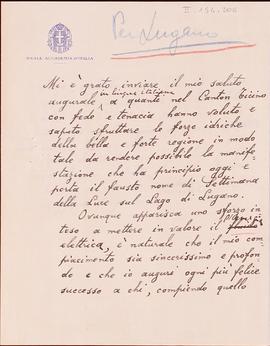 II. 154.206
Per Lugano
REALE ACCADEMIA D'ITALIA
Mi è grato inviare il mio saluto
in lingua italiana
augurale a quanti nel Canton Ticino
con fede e tenacia hanno voluto e
saputo sfruttare le forze idriche
della bella e forte regione in modo
tale da rendere possibile la manife-
stazione che ha principio oggi e
porta il fausto nome di Settimana
della Luce sul Lago di Lugano.
Ovunque apparisca uno sforzo in
teso a mettere in valore il
elettrica, è naturale che il mio com
piacimento sia sincerissimo e profon
do e che io auguri ogni più felice
successo a chi, compiendo quello